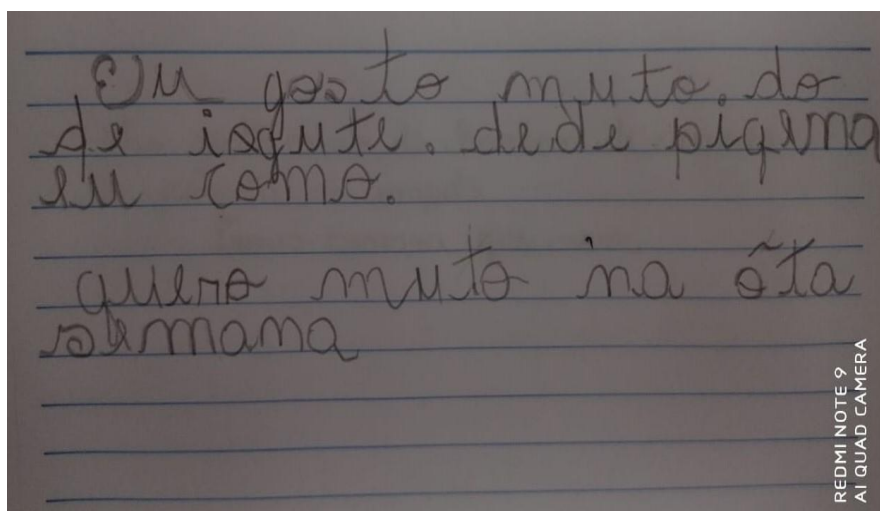 Eu gosto muto. do
de isqute. dede piqena
eu como.
quero muto ina õta
semana
REDMI NOTE 9
AI QUAD CAMERA